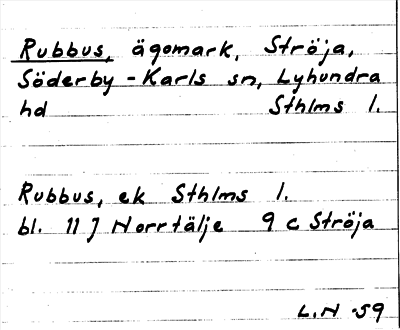 Rubbus, ägomark, Ströja,
Söderby-Karls sn, Lyhundra
hd Sthlms l.
Rubbus, ek Sthlms l.
bl. 11 J Norrtälje 9 c Ströja
L.N -59